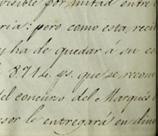 visible por mitad entre
ria: pero como esta, reci
y ha de quedar á su ca
8714 ps. que se recono
el concurso del Marques
sor le entregará en din